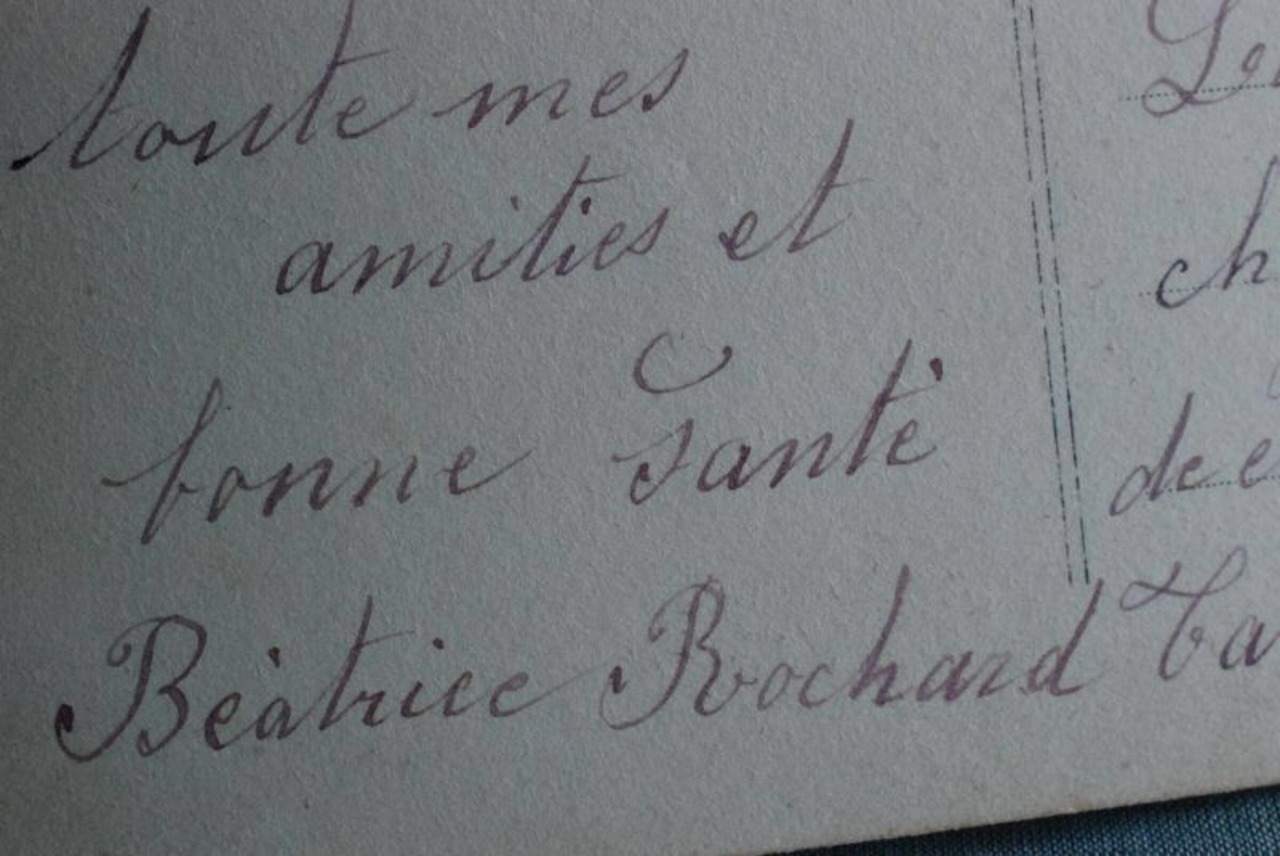 toute mes
amities et
bonne santé
Béatrice Rochard